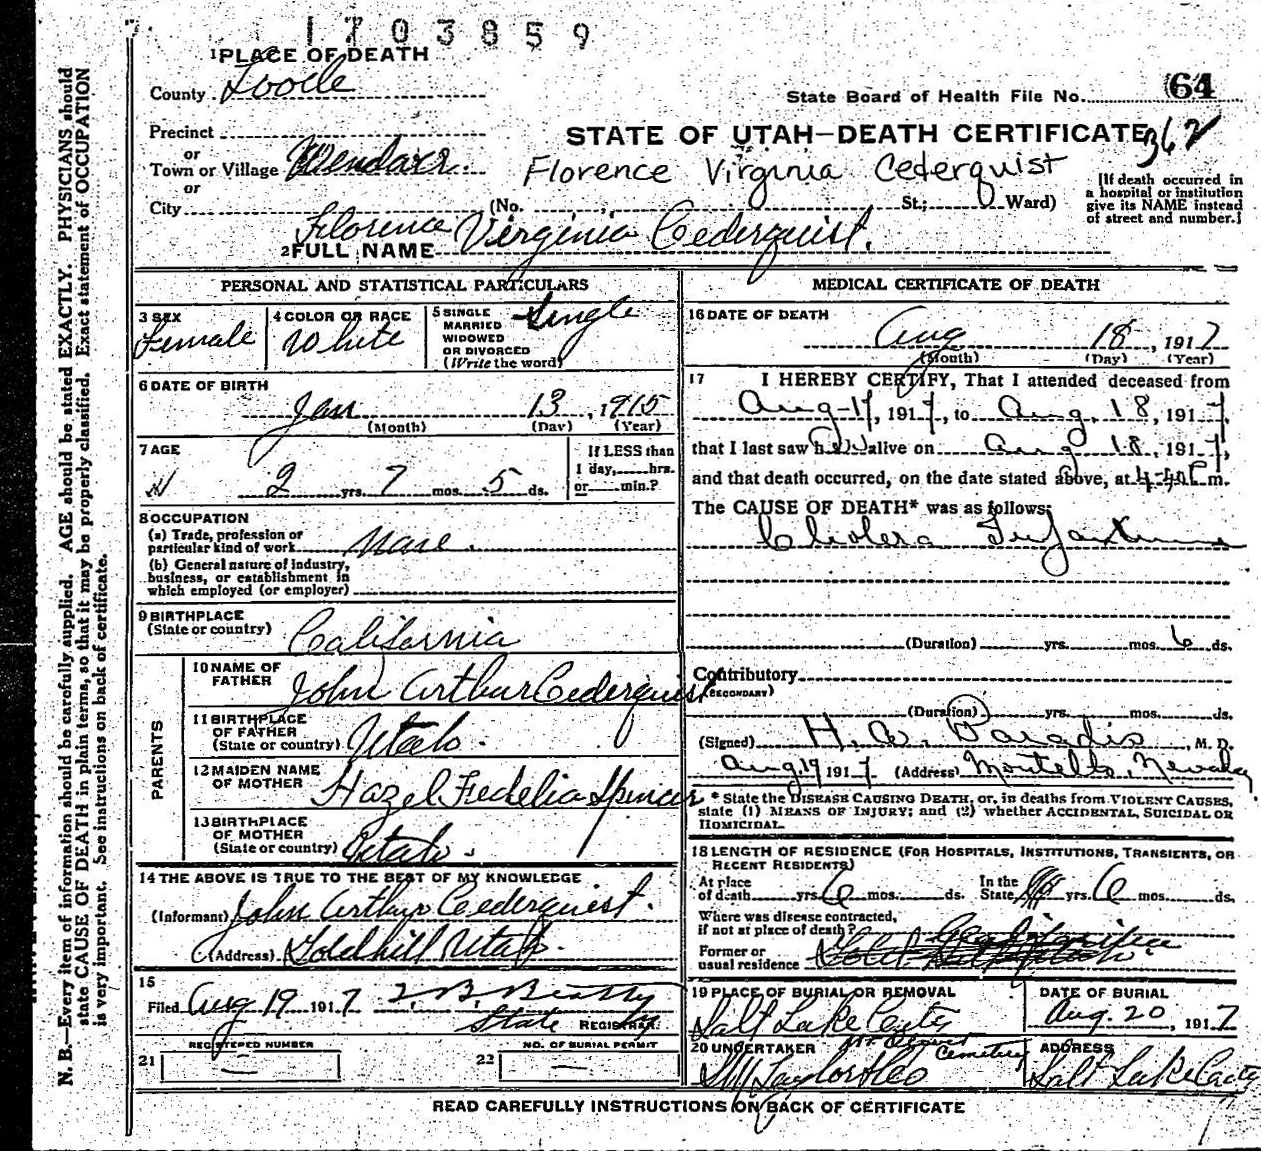 1703859
1 PLACE OF DEATH
County Tooele
State Board of Health File No. 64
Precinct
STATE OF UTAH—DEATH CERTIFICATE 362
or
Town or Village Wendover
Florence Virginia Cederquist
or
City (No. St.; Ward)
[If death occurred in
a hospital or institution
give its NAME instead
of street and number.]
2 FULL NAME Florence Virginia Cederquist.
PERSONAL AND STATISTICAL PARTICULARS
3 SEX Female
4 COLOR OR RACE White
5 SINGLE
MARRIED
WIDOWED
OR DIVORCED
(Write the word) Single
6 DATE OF BIRTH
Jan 13, 1915
(Month) (Day) (Year)
7 AGE
2 yrs. 7 mos. 5 ds.
If LESS than
1 day, hrs.
or min.?
8 OCCUPATION
(a) Trade, profession or
particular kind of work None.
(b) General nature of industry,
business, or establishment in
which employed (or employer)
9 BIRTHPLACE
(State or country) California
PARENTS
10 NAME OF
FATHER John Arthur Cederquist
11 BIRTHPLACE
OF FATHER
(State or country) Utah.
12 MAIDEN NAME
OF MOTHER Hazel Fedelia Spencer
13 BIRTHPLACE
OF MOTHER
(State or country) Utah.
14 THE ABOVE IS TRUE TO THE BEST OF MY KNOWLEDGE
(Informant) John Arthur Cederquist.
(Address) Goldhill Utah.
15
Filed Aug 19 1917 T. B. Beatty
State REGISTRAR.
REGISTERED NUMBER
21 —
NO. OF BURIAL PERMIT
22 —
MEDICAL CERTIFICATE OF DEATH
16 DATE OF DEATH
Aug 18, 1917
(Month) (Day) (Year)
17 I HEREBY CERTIFY, That I attended deceased from
Aug-17, 1917, to Aug. 18, 1917,
that I last saw her alive on Aug 18, 1917,
and that death occurred, on the date stated above, at m.
The CAUSE OF DEATH* was as follows:
Cholera Infantum
(Duration) yrs. mos. 6 ds.
Contributory
(SECONDARY)
(Duration) yrs. mos. ds.
(Signed) H. W. Paradis, M. D.
Aug 19 1917 (Address) Montello, Nevada
* State the DISEASE CAUSING DEATH, or, in deaths from VIOLENT CAUSES,
state (1) MEANS OF INJURY; and (2) whether ACCIDENTAL, SUICIDAL OR
HOMICIDAL.
18 LENGTH OF RESIDENCE (FOR HOSPITALS, INSTITUTIONS, TRANSIENTS, OR
RECENT RESIDENTS)
At place
of death yrs. 6 mos. ds.
In the
State yrs. 6 mos. ds.
Where was disease contracted,
if not at place of death?
Former or
usual residence
19 PLACE OF BURIAL OR REMOVAL
Salt Lake City
Mt Olivet
Cemetery
DATE OF BURIAL
Aug. 20, 1917
20 UNDERTAKER
S M Taylor & Co
ADDRESS
Salt Lake City
READ CAREFULLY INSTRUCTIONS ON BACK OF CERTIFICATE
N. B.—Every item of information should be carefully supplied. AGE should be stated EXACTLY. PHYSICIANS should
state CAUSE OF DEATH in plain terms, so that it may be properly classified. Exact statement of OCCUPATION
is very important. See instructions on back of certificate.